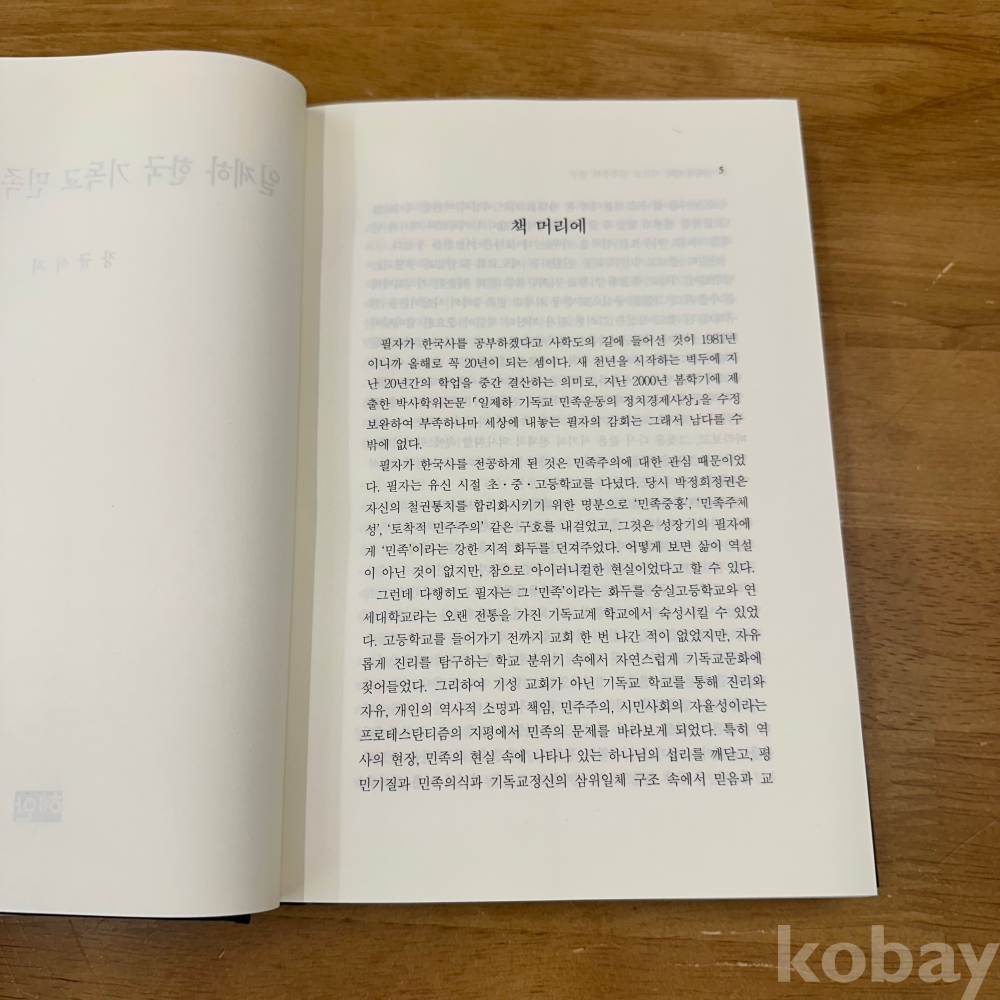 일제하 한국 기독교 민족
장 규 식 저
혜안
5
책 머리에
필자가 한국사를 공부하겠다고 사학도의 길에 들어선 것이 1981년
이니까 올해로 꼭 20년이 되는 셈이다. 새 천년을 시작하는 벽두에 지
난 20년간의 학업을 중간 결산하는 의미로, 지난 2000년 봄학기에 제
출한 박사학위논문 「일제하 기독교 민족운동의 정치경제사상」을 수정
보완하여 부족하나마 세상에 내놓는 필자의 감회는 그래서 남다를 수
밖에 없다.
필자가 한국사를 전공하게 된 것은 민족주의에 대한 관심 때문이었
다. 필자는 유신 시절 초·중·고등학교를 다녔다. 당시 박정희정권은
자신의 철권통치를 합리화시키기 위한 명분으로 ‘민족중흥’, ‘민족주체
성’, ‘토착적 민주주의’ 같은 구호를 내걸었고, 그것은 성장기의 필자에
게 ‘민족’이라는 강한 지적 화두를 던져주었다. 어떻게 보면 삶이 역설
이 아닌 것이 없지만, 참으로 아이러니컬한 현실이었다고 할 수 있다.
그런데 다행히도 필자는 그 ‘민족’이라는 화두를 숭실고등학교와 연
세대학교라는 오랜 전통을 가진 기독교계 학교에서 숙성시킬 수 있었
다. 고등학교를 들어가기 전까지 교회 한 번 나간 적이 없었지만, 자유
롭게 진리를 탐구하는 학교 분위기 속에서 자연스럽게 기독교문화에
젖어들었다. 그리하여 기성 교회가 아닌 기독교 학교를 통해 진리와
자유, 개인의 역사적 소명과 책임, 민주주의, 시민사회의 자율성이라는
프로테스탄티즘의 지평에서 민족의 문제를 바라보게 되었다. 특히 역
사의 현장, 민족의 현실 속에 나타나 있는 하나님의 섭리를 깨닫고, 평
민기질과 민족의식과 기독교정신의 삼위일체 구조 속에서 믿음과 교
kobay